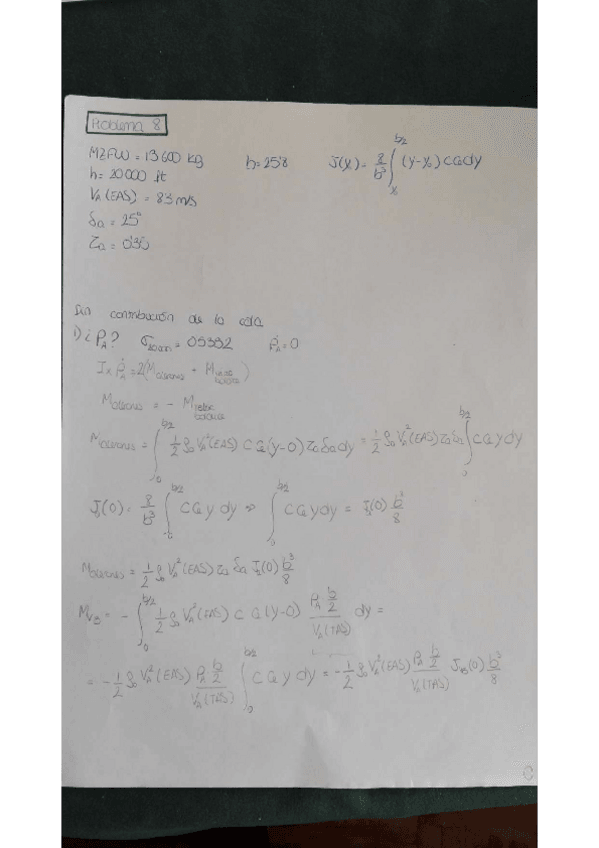 Problema 8
MZFW = 13600 kg b = 25'8 J(y₀) = 8/b³ ∫_{y₀}^{b/2} (y-y₀) c a dy
h = 20000 ft
V_A (EAS) = 83 m/s
δa = 25°
τa = 0'30
Sin contribución de la cola
1) ¿ P_A? σ_20000 = 0'5332 Ṗ_A = 0
I_x Ṗ_A = 2(M_alerones +
M_alerones = - M
M_alerones = ∫_0^{b/2} 1/2 ρ₀ V_A²(EAS) c a (y-0) τa δa dy = 1/2 ρ₀ V_A²(EAS) τa δa ∫_0^{b/2} c a y dy
J(0) = 8/b³ ∫_0^{b/2} c a y dy ⇒ ∫_0^{b/2} c a y dy = J(0) b³/8
M_alerones = 1/2 ρ₀ V_A²(EAS) τa δa J(0) b³/8
M_VB = - ∫_0^{b/2} 1/2 ρ₀ V_A²(EAS) c a (y-0) (P_A b/2)/V_A(TAS) dy =
= - 1/2 ρ₀ V_A²(EAS) (P_A b/2)/V_A(TAS) ∫_0^{b/2} c a y dy = - 1/2 ρ₀ V_A²(EAS) (P_A b/2)/V_A(TAS) J(0) b³/8